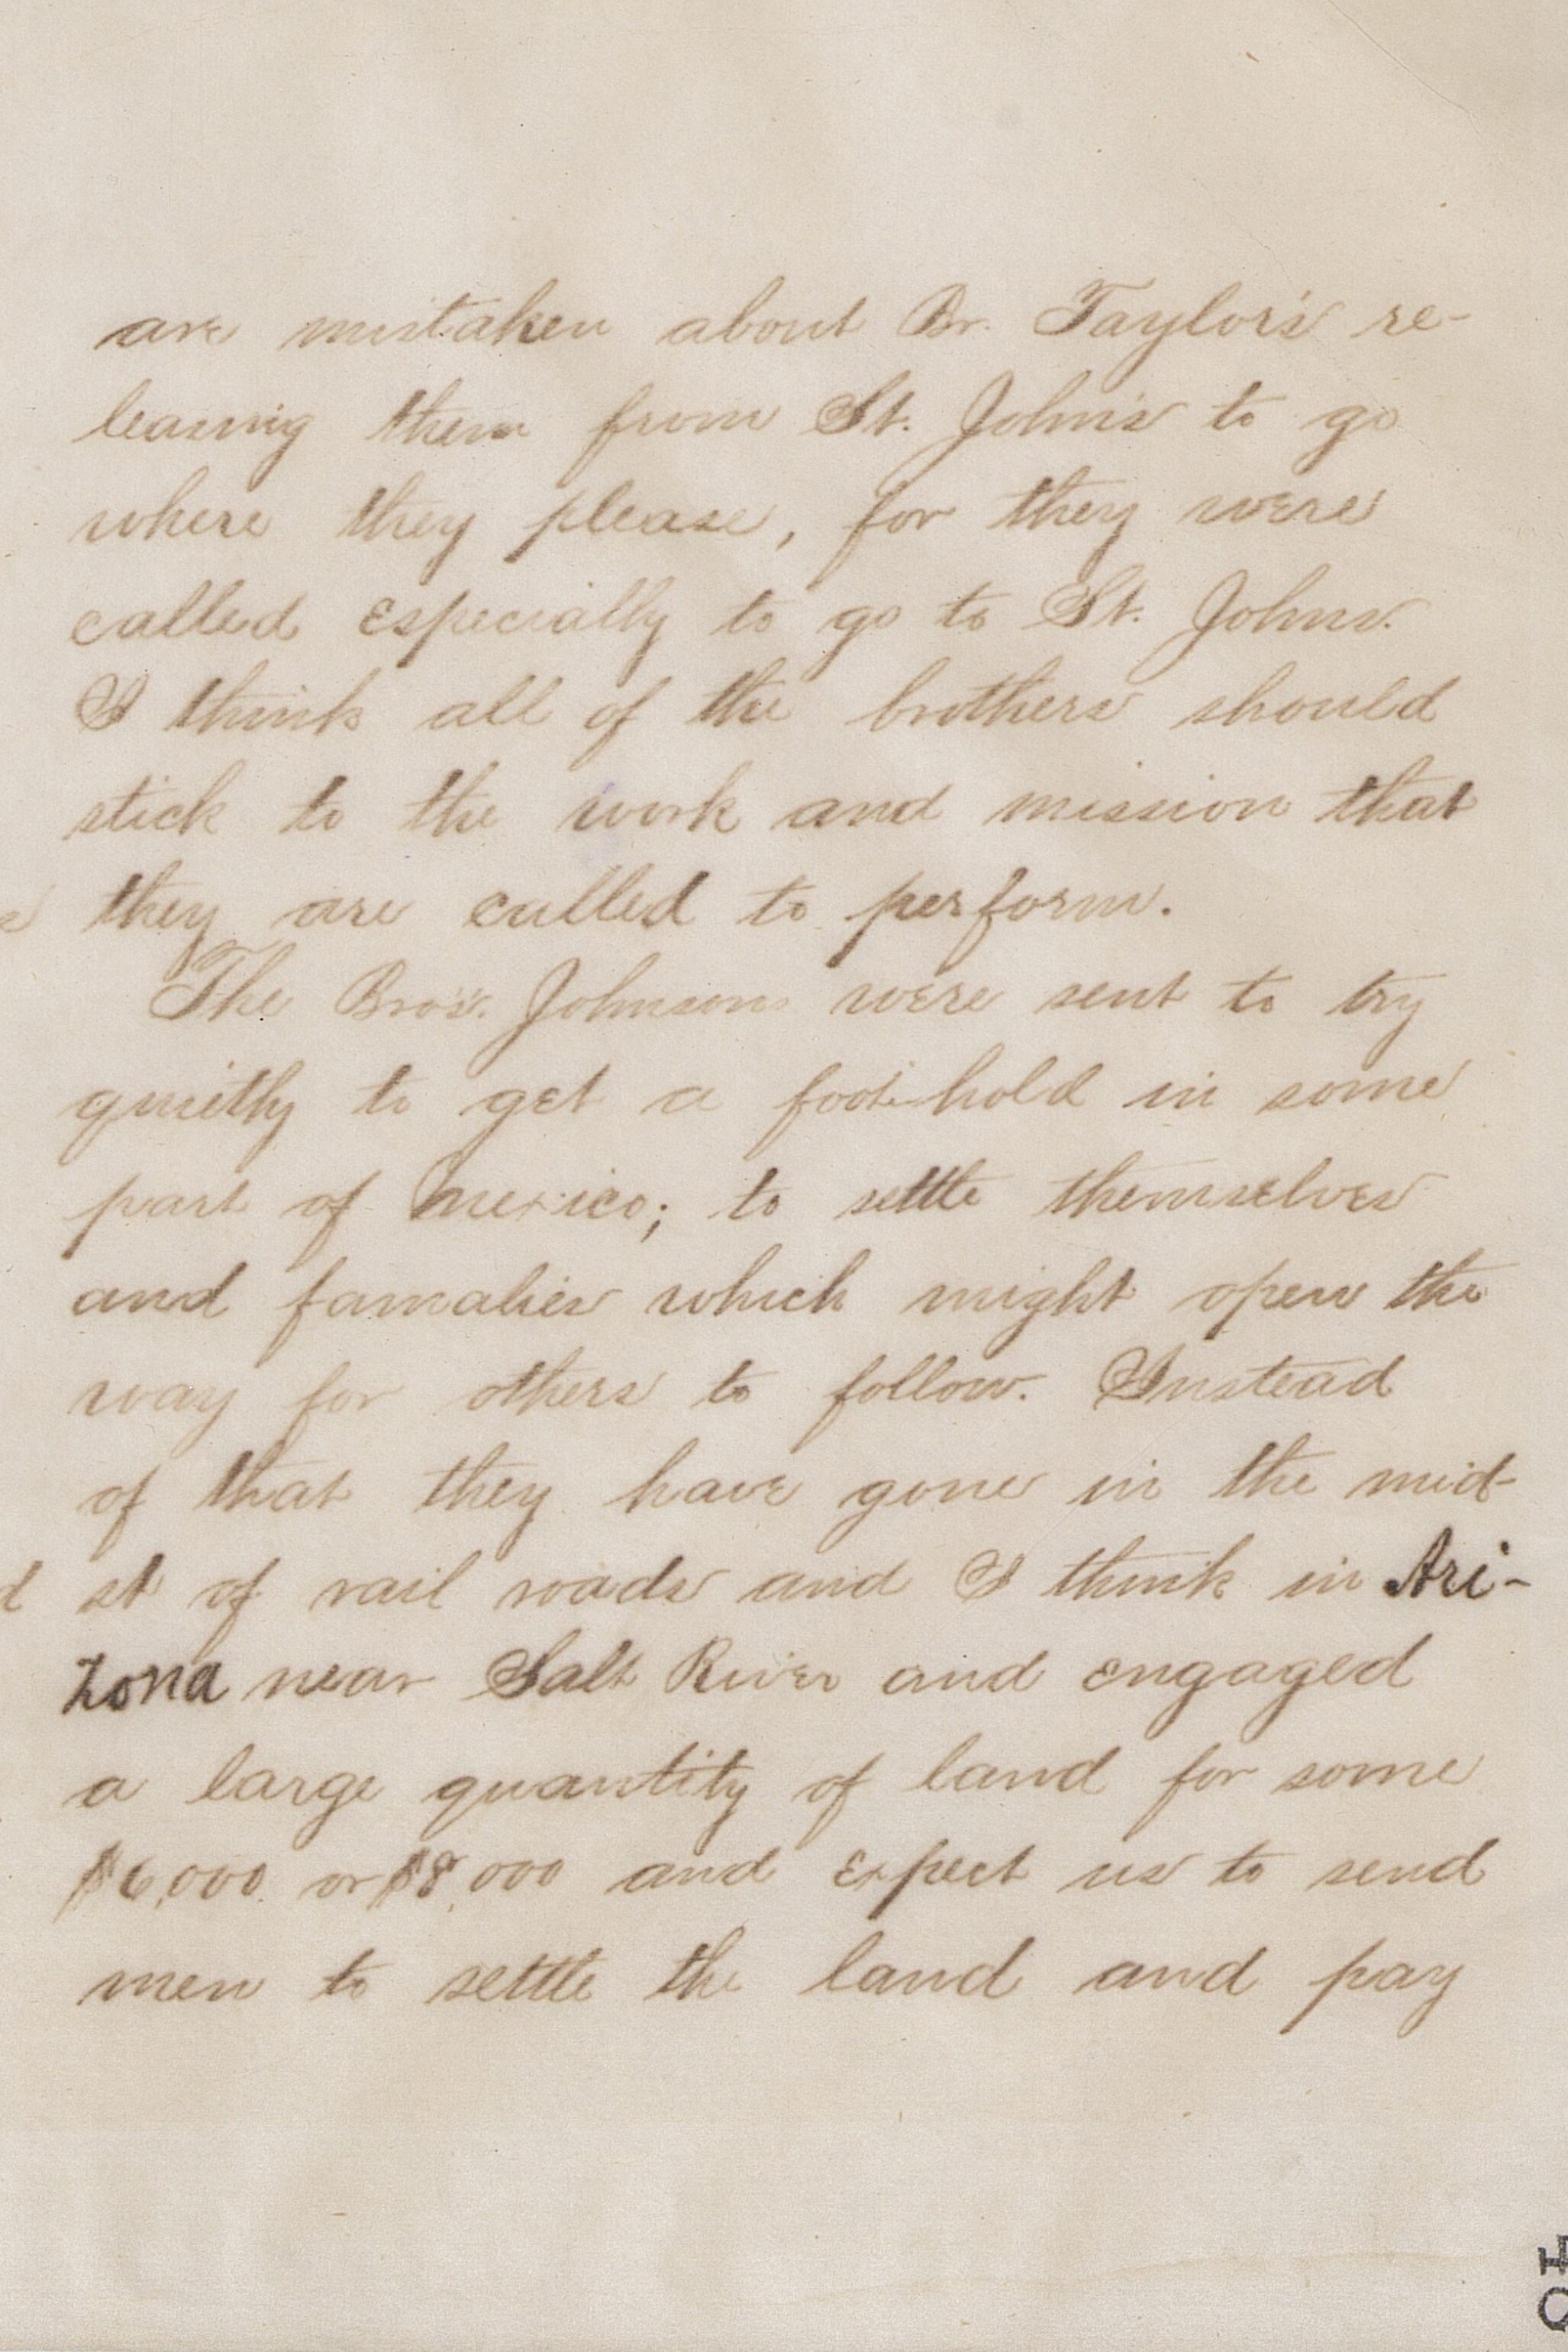 are mistaken about Br. Taylor's re-
leasnig them from St. John's to go
where they please, for they were
called especially to go to St. Johns.
I think all of the brothers should
stick to the work and mission that
they are called to perform.
The Bros. Johnsons were sent to try
quietly to get a foot-hold in some
part of Mexico; to settle themselves
and famalies which might open the
way for others to follow. Instead
of that they have gone in the mid-
st of rail roads and I think in Ari-
zona near Salt River and engaged
a large quantity of land for some
$6,000 or $8,000 and expect us to send
men to settle the land and pay